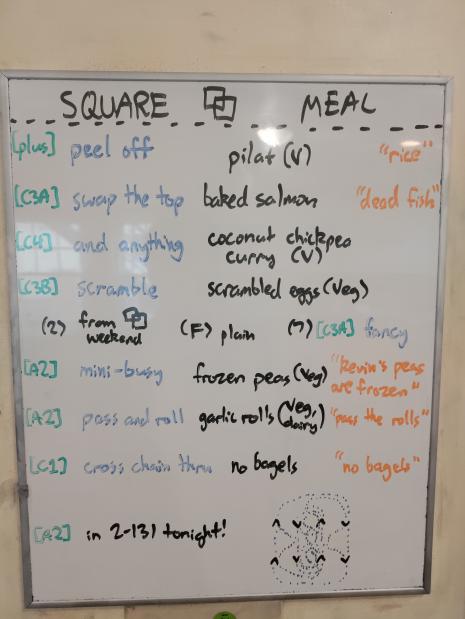 SQUARE MEAL
[plus] peel off pilaf (V) "rice"
[C3A] swap the top baked salmon "dead fish"
[C4] and anything coconut chickpea
curry (V)
[C3B] scramble scrambled eggs (Veg)
(2) from weekend (F) plain (7) [C3A] fancy
[A2] mini-busy frozen peas (Veg) "kevin's peas
are frozen"
[A2] pass and roll garlic rolls (Veg, dairy) "pass the rolls"
[C1] cross chain thru no bagels "no bagels"
[A2] in 2-131 tonight!